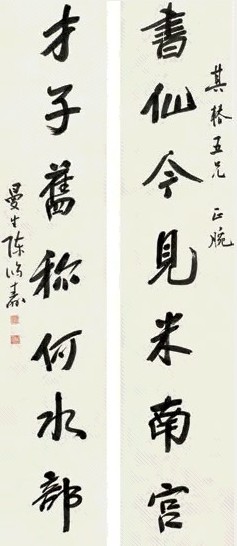 書仙今見米南宫
其㯳五兄 正腕
才子舊称何水部
曼生陈鸿壽